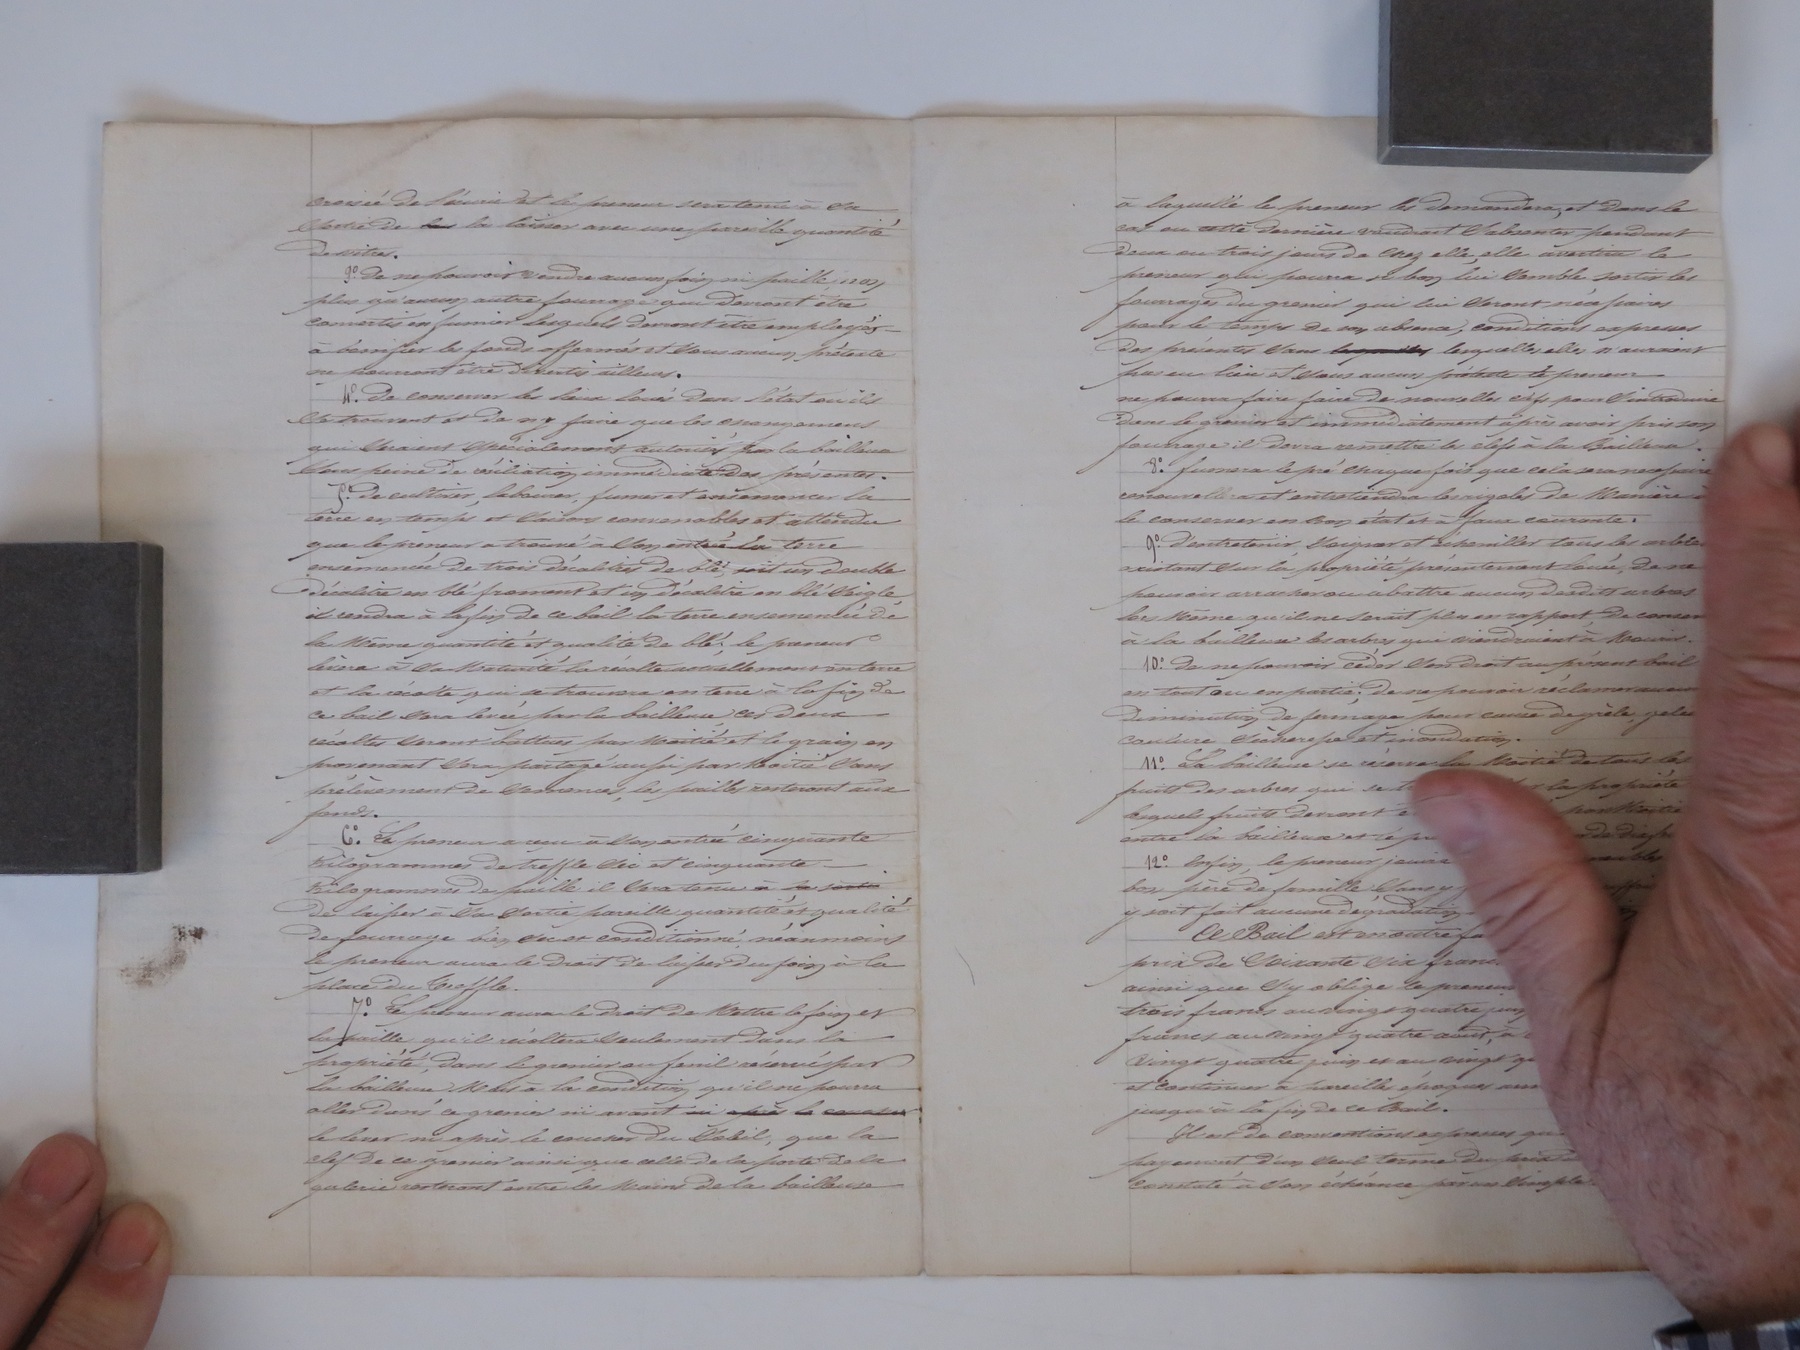 croisée de l'écurie et le preneur sera tenu à sa
sortie de la laisser avec une pareille quantité
de vitres.
3º De ne pouvoir vendre aucun foin ni paille non
plus qu'aucun autre fourrage qui devront être
convertis en fumier lesquels devront être employés
à bonifier les fonds affermés et sous aucun prétexte
ne pourront être divertis ailleurs.
4º. De conserver les lieux loués dans l'état où ils
se trouvent et de n'y faire que les changemens
qui seraient spécialement autorisés par la bailleuse
sous peine de résiliation immédiate des présentes.
5º De cultiver, labourer, fumer et ensemencer la
terre en temps et saisons convenables et attendu
que le preneur a trouvé à son entrée la terre
ensemencée de trois décalitres de blé, soit un double
décalitre en blé froment et un décalitre en blé seigle
il rendra à la fin de ce bail la terre ensemencée de
la même quantité et qualité de blé; le preneur
lèvera à sa maturité la récolte actuellement en terre
et la récolte qui se trouvera en terre à la fin de
ce bail sera levée par la bailleuse ces deux
récoltes seront battues par moitié et le grain en
provenant sera partagé aussi par moitié sans
prélèvement de semences, les pailles resteront aux
fonds.
6º. Le preneur a reçu à son entrée cinquante
Kilogrammes de treffle sec et cinquante
Kilogrammes de paille il sera tenu à sa sortie
de laisser à sa sortie pareille quantité et qualité
de fourrage bien sec et conditionné, néanmoins
le preneur aura le droit de laisser du foin à la
place du treffle.
7º Le preneur aura le droit de mettre le foin et
la paille qu'il récoltera seulement dans la
propriété, dans le grenier ou fenil réservé par
la bailleuse mais à la condition qu'il ne pourra
aller dans ce grenier ni avant ni après le coucher
le lever ni après le coucher du soleil, que la
clef de ce grenier ainsi que celle de la porte de la
galerie resteront entre les mains de la bailleuse
à laquelle le preneur les demandera, et dans le
cas où cette dernière voudrait s'absenter pendant
deux ou trois jours de chez elle, elle avertira le
preneur qui pourra si bon lui semble sortir les
fourrages du grenier qui lui seront nécessaires
pour le temps de son absence, conditions expresses
des présentes sans lesquelles elles n'auraient
pas eu lieu et sous aucun prétexte le preneur
ne pourra faire faire de nouvelles clefs pour s'introduire
dans le grenier et immédiatement après avoir pris son
fourrage il devra remettre les clefs à la Bailleuse.
8º. fumera le pré chaque fois que cela sera nécessaire
renouvellera et entretiendra les rigoles de manière à
le conserver en bon état et à faux courante.
9º. D'entretenir, soigner et écheniller tous les arbres
existant sur la propriété présentement louée, de ne
pouvoir arracher ou abattre aucun desdits arbres
lors même qu'il ne serait plus en rapport, de conserver
à la bailleuse les arbres qui viendraient à mourir.
10º. de ne pouvoir céder son droit au présent bail
en tout ou en partie; de ne pouvoir réclamer aucune
diminution de fermage pour cause de grêle, gelée
coulure sécheresse et inondation.
11º La bailleuse se réserve la moitié de tous les
fruits des arbres qui se la propriété
lesquels fruits devront moitié
entre la bailleuse et le
12º Enfin, le preneur jouira
bon père de famille sans y
y soit fait aucune dégradation
Ce Bail est en outre
prix de soixante six francs
ainsi que s'y oblige le preneur
trois francs au vingt quatre juin
francs au vingt quatre août, à
vingt quatre juin et au vingt
et continuer à pareilles époques
jusqu'à la fin de ce Bail.
Il est de conventions expresses
payement d'un seul terme du prix
constaté à son échéance par un simple